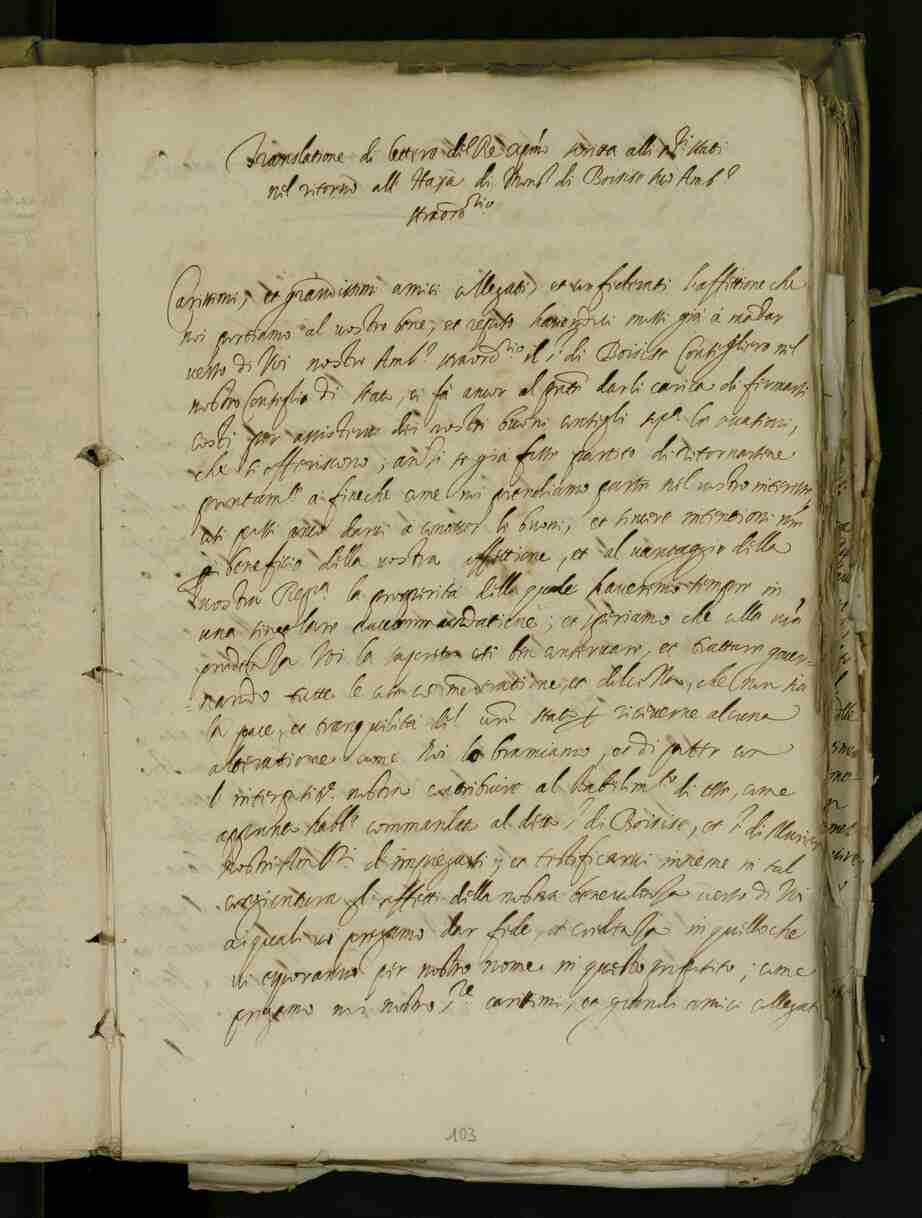 Translatione di lettera del Re Xpmo scritta alli ss.ri stati
nel ritorno all'Haya di Mons.r di Boisise suo Amb.r
straord.rio
Carissimi, et grandissimi amici collegati, et confederati l'affittione che
noi portiamo al vostro bene, et reputo havendoci mossi già à mandar
verso di Voi nostro Amb.r straord.rio il s.r di Boisise Consigliero nel
nostro Consiglio di stato, ci fà ancor al pnte darli carico di fermarsi
costì per assistere dei nostri buoni consigli sop.a le occasioni,
che si offeriscono; anzi se già fatto partito di ritornarsene
prontam.te a fine che come noi prendiamo parte nel vostro interesse
così possi anco darvi à conoscer le buone, et sincere intentioni nre
à beneficio della vostra affettione, et al vantaggio della
vostra Rep.ca la prosperità della quale haveremo sempre in
una singolare raccomandatione; et speriamo che colla vra
prudenza Voi la saprete così ben conservare, et trattare gover-
nando tutte le cose con moderatione, et dolcezza, che non sia
la pace, et tranquilità del vro stato per riceverne alcuna
alteratione come Noi lo bramiamo, et di poter con
l'interpositione nostra contribuire al stabilim.to di esso, come
appunto habb.mo commandato al detto s.r di Boisise, et s.r di Murier
nostri Amb.ri d'impiegarsi, et testificarvi insieme in tal
congientura gl'effetti della nostra benevolenza verso di Voi
ai quali vi preghiamo dar fede, et credenza in quello che
vi esporanno per nostro nome in questo proposito; come
preghiamo noi nostro s.re carissimi, et grandi amici collegati
103